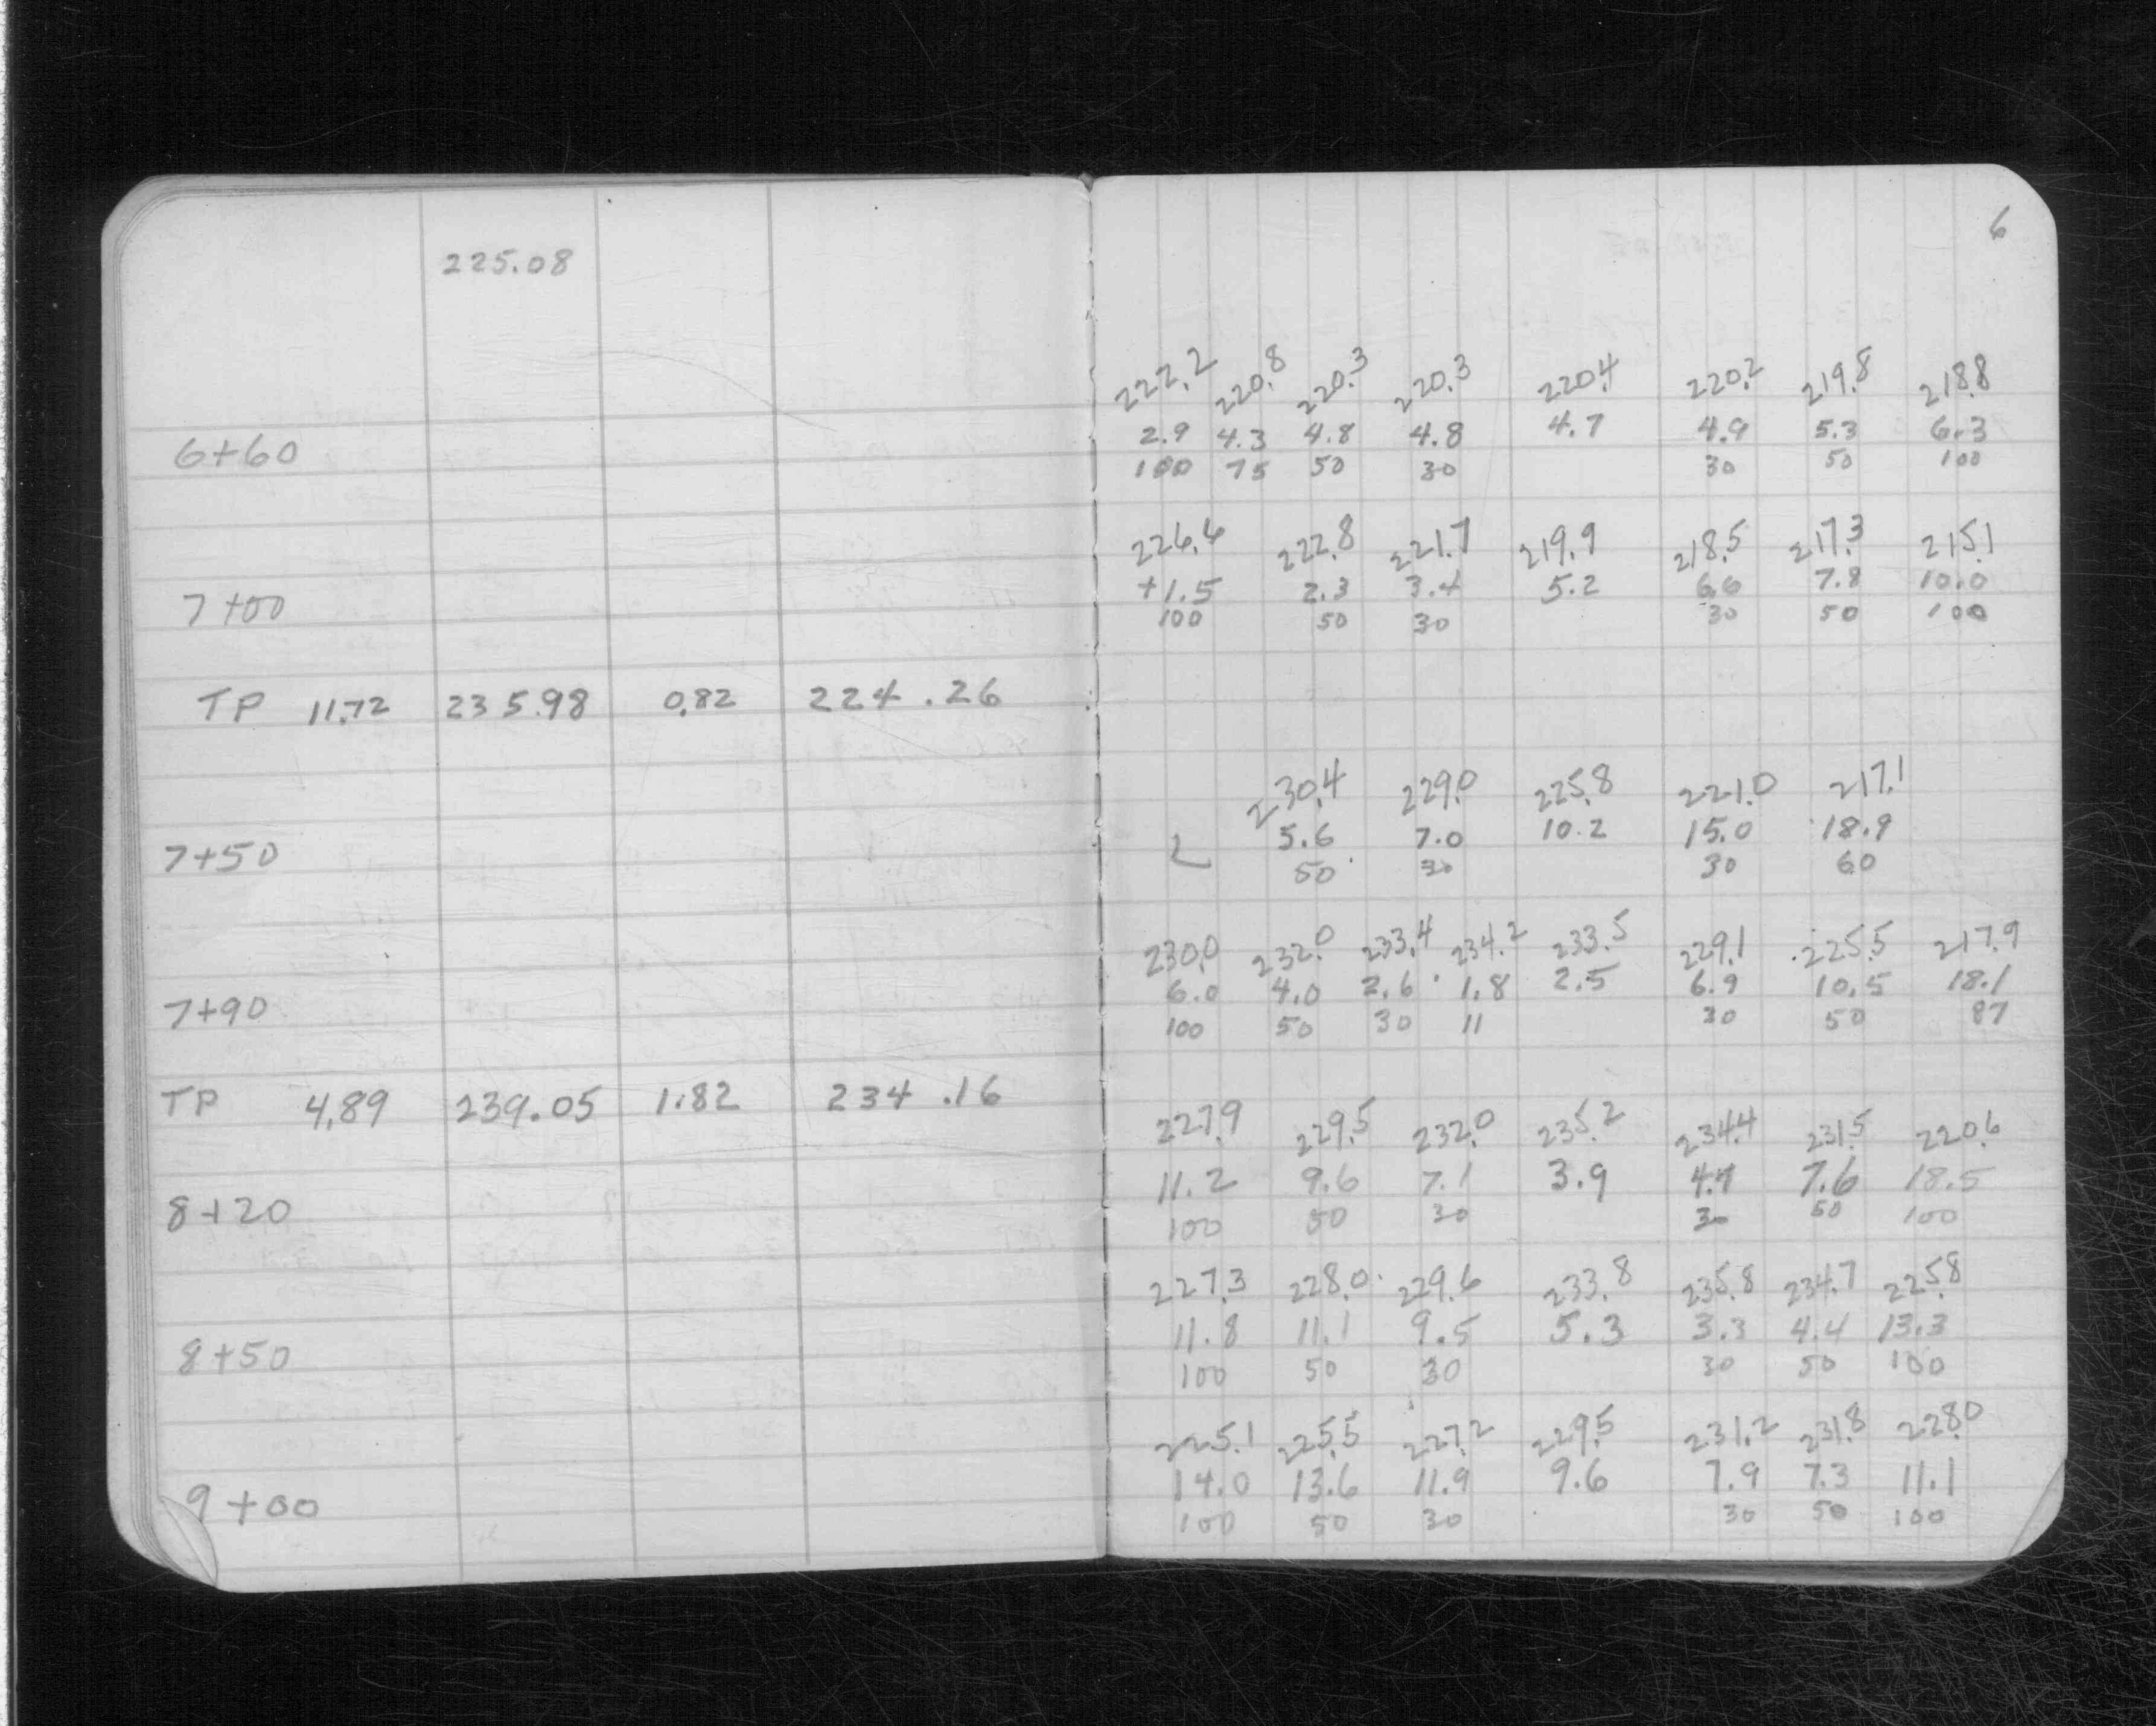 6
225.08
222.2 220.8 220.3 220.3 220.4 220.2 219.8 218.8
2.9 4.3 4.8 4.8 4.7 4.9 5.3 6.3
6+60 100 75 50 30 30 50 100
226.6 222.8 221.7 219.9 218.5 217.3 215.1
+1.5 2.3 3.4 5.2 6.6 7.8 10.0
7+00 100 50 30 30 50 100
TP 11.72 235.98 0.82 224.26
230.4 229.0 225.8 221.0 217.1
5.6 7.0 10.2 15.0 18.9
7+50 50 30 30 60
230.0 232.0 233.4 234.2 233.5 229.1 225.5 217.9
6.0 4.0 2.6 1.8 2.5 6.9 10.5 18.1
7+90 100 50 30 11 30 50 87
TP 4.89 239.05 1.82 234.16
227.9 229.5 232.0 235.2 234.4 231.5 220.6
11.2 9.6 7.1 3.9 7.6 18.5
8+20 100 50 30 30 50 100
227.3 228.0 229.6 233.8 235.8 234.7 225.8
11.8 11.1 9.5 5.3 3.3 4.4 13.3
8+50 100 50 30 30 50 100
225.1 225.5 227.2 229.5 231.2 231.8 228.0
14.0 13.6 11.9 9.6 7.9 7.3 11.1
9+00 100 50 30 30 50 100